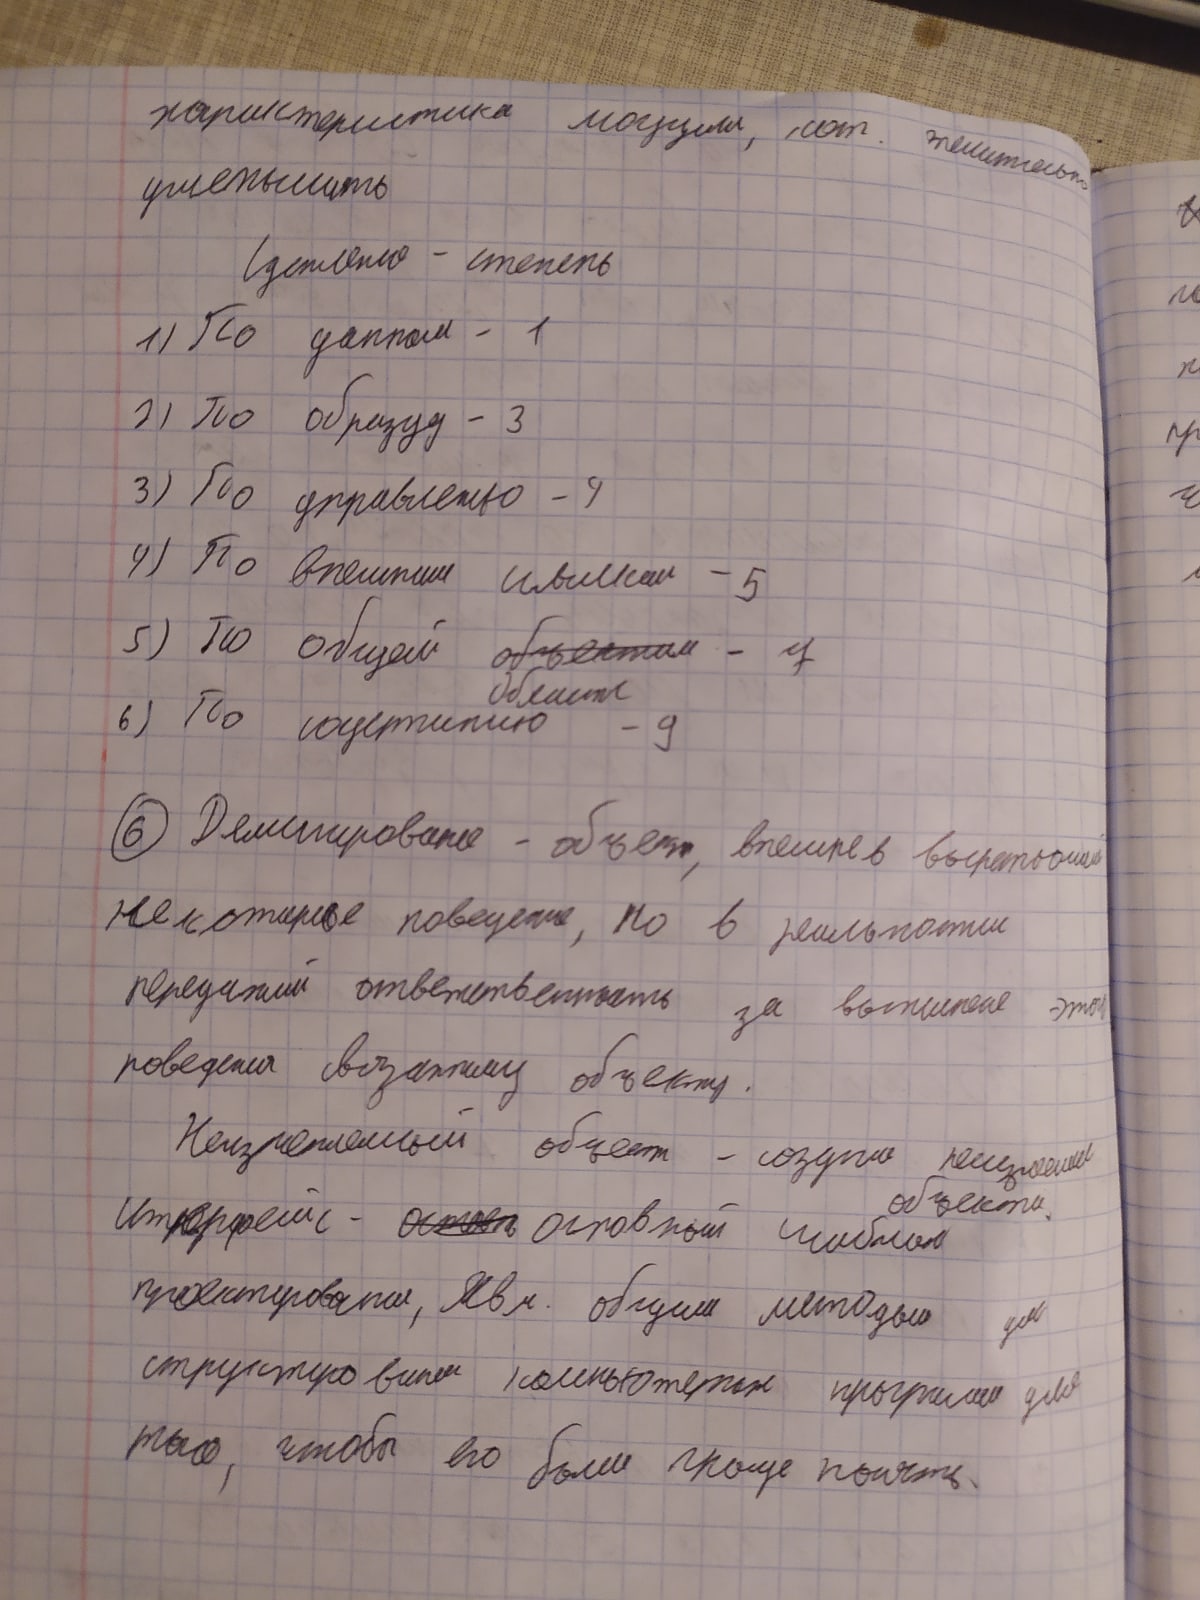 характеристика модуля, кот. желательно
уменьшить
Сцепление - степень
1) По данным - 1
2) По образцу - 3
3) По управлению - 4
4) По внешним ссылкам - 5
5) По общей объектам - 7
области
6) По содержанию - 9
6 Делегирование - объект, внешне выражающий
некоторое поведение, но в реальности
передающий ответственность за выполнение этого
поведения связанному объекту.
Неизменяемый объект - создание неизменяем
объекта.
Интерфейс - основной шаблон
проектирования, явл. общим методом для
структурирования компьютерных программ для
того, чтобы его было проще понять.